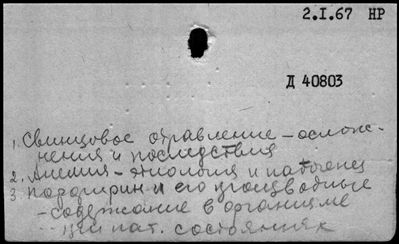 2.I.67 НР
Д 40803
1. Свинцовое отравление – ослож-
нения и последствия
2. Анемия – этиология и патогенез
3. Порфирин и его производные
– содержание в организме
при пат. состояниях